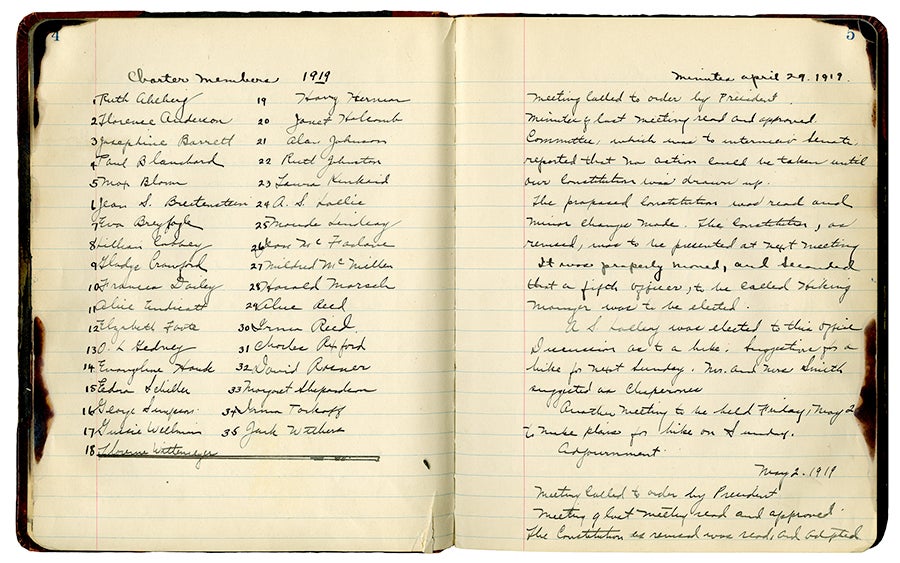 4
Charter Members 1919
1 Ruth Ahlberg
2 Florence Anderson
3 Josephine Barrett
4 Paul Blanchard
5 Max Bloom
6 Jean S. Breitenstein
7 Eva Breyfogle
8 Lillian
9 Gladys Crawford
10 Francis Dailey
11 Alice Endicott
12 Elizabeth Foote
13 O. L. Gedney
14 Evangeline
15 Schiller
16 George Simpson
17 Wellman
18 Florence Wittemeyer
19 Harry Herman
20 Janet Holcomb
21 Alan Johnson
22 Ruth Johnston
23 Laura Kinkaid
24 A. S.
25 Maude Lindsay
26 McFarlane
27 Mildred McMillen
28 Harold Marsch
29 Alice Reed
30 Irma Reed.
31 Charles Rxford
32 David Rosner
33 Margret Shepardson
34 Irma Torkoff
35 Jack Withers
5
Minutes april 29. 1919.
Meeting Called to order by President.
Minutes of last meeting read and approved.
Committee, which was to interview Senate,
reported that no action could be taken until
our Constitution was drawn up.
The proposed Constitution was read and
minor change made. The Constitution, as
revised, was to be presented at next meeting
It was properly moved, and seconded
that a fifth officer, to be called Hiking
Manager was to be elected.
A S was elected to this office
Discussion as to a hike. Suggestive for a
hike for next Sunday. Mr. and Mrs Smith
suggested as Chaperones
Another meeting to be held Friday, May 2
to make plans for hike on Sunday.
Adjournment.
May 2. 1919
Meeting Called to order by President
Meeting of last meeting read and approved.
The Constitution as revised was read, and adopted